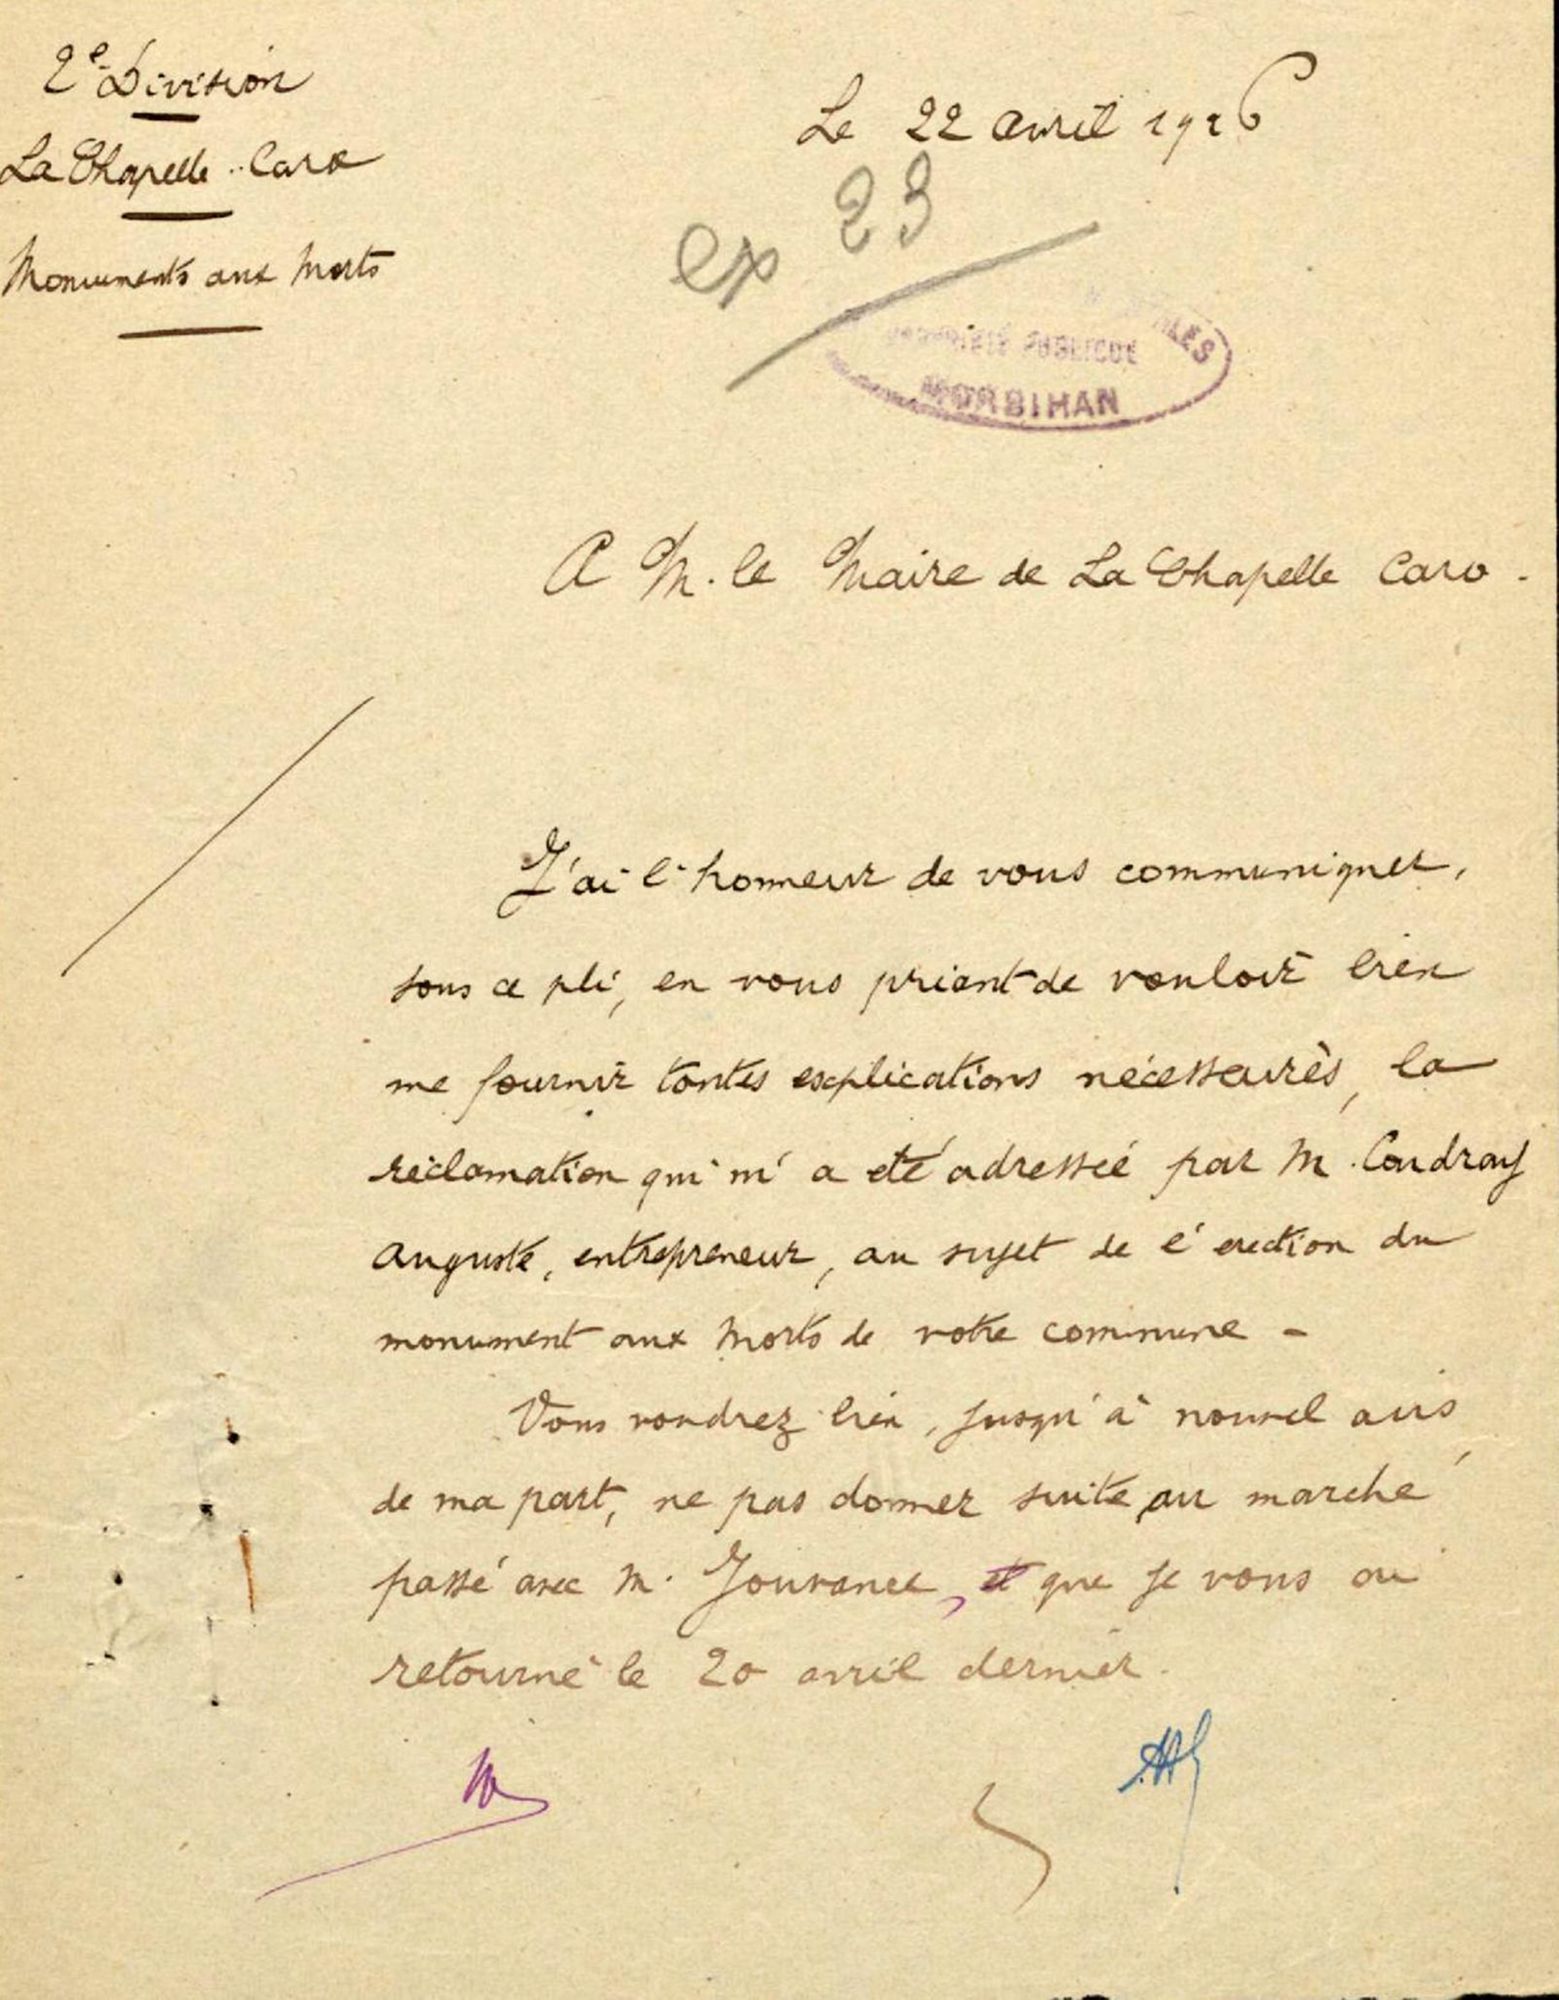 2e Division
La Chapelle-Caro
Monuments aux Morts
Le 22 avril 1926
ex 23
PROPRIÉTÉ PUBLIQUE
MORBIHAN
A M. le Maire de La Chapelle Caro.
J'ai l'honneur de vous communiquer,
sous ce pli, en vous priant de vouloir bien
me fournir toutes explications nécessaires, la
réclamation qui m'a été adressée par M. Coudray
Auguste, entrepreneur, au sujet de l'érection du
monument aux Morts de votre commune -
Vous voudrez bien, jusqu'à nouvel avis
de ma part, ne pas donner suite au marché
passé avec M. Jouvance, et que je vous ai
retourné le 20 avril dernier.